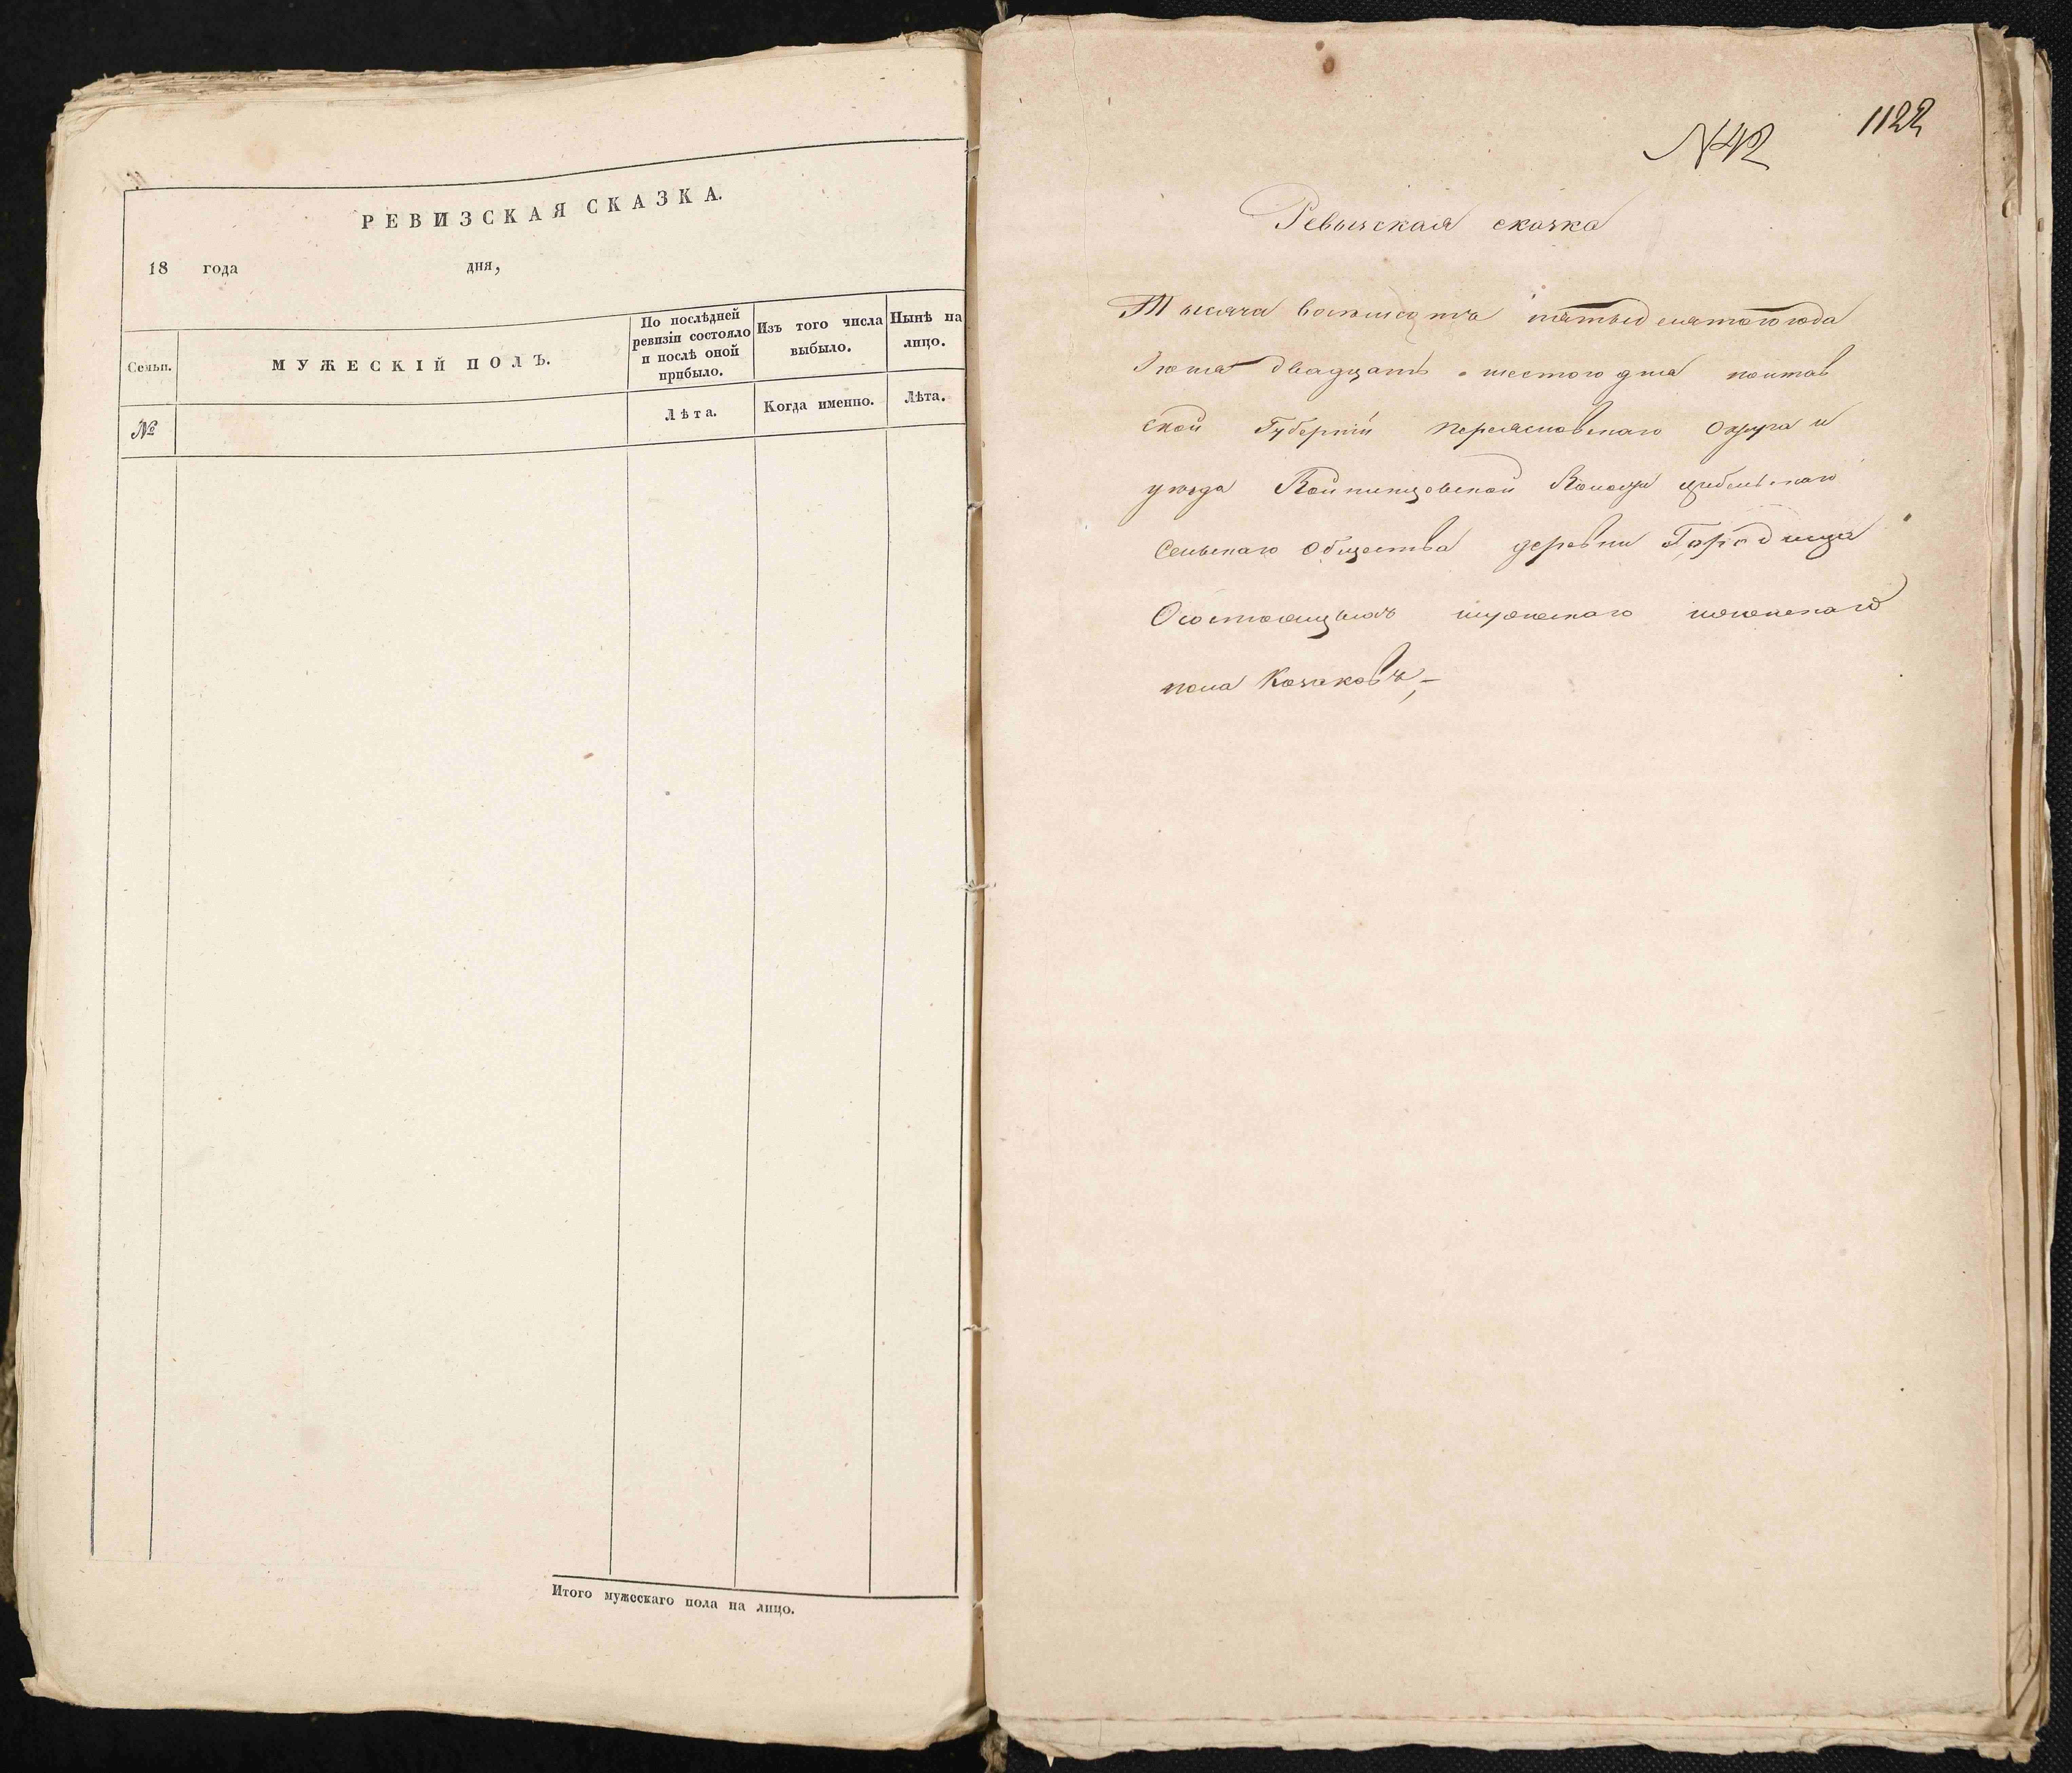 РЕВИЗСКАЯ СКАЗКА.
18 года дня,
Семьи.
МУЖЕСКІЙ ПОЛЪ.
По послѣдней
ревизіи состояло
и послѣ оной
прибыло.
Изъ того числа
выбыло.
Нынѣ на
лицо.
№
Лѣта.
Когда именно.
Лѣта.
Итого мужескаго пола на лицо.
1122
N42
Ревызская сказка
Тысяча восемьсотъ пятьдесятого года
Іюня двадцать шестого дня полтав
ской Губерніи Переясловскаго Округа и
уѣзда Войницовской Волости цибельскаго
Сельскаго Общества деревни Городища
Осостоящихъ мужескаго иженскаго
пола Козаковъ,—